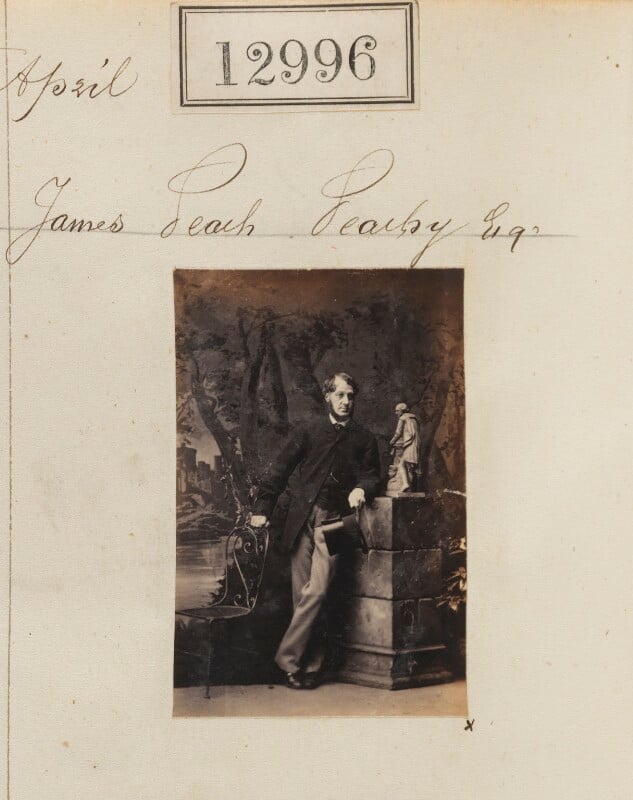 12996
April
James Peach Pearby Esq.
x